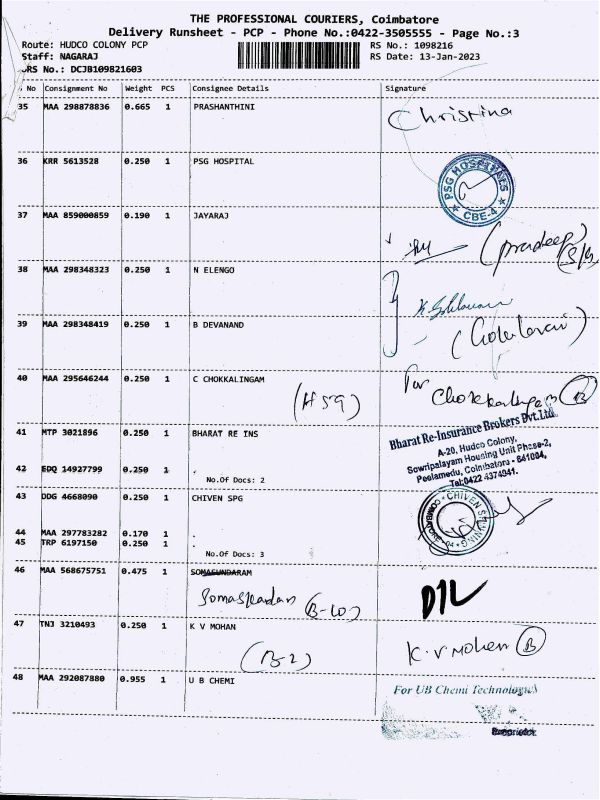 THE PROFESSIONAL COURIERS, Coimbatore
Delivery Runsheet - PCP - Phone No.:0422-3505555 - Page No.:3
Route: HUDCO COLONY PCP RS No.: 1098216
Staff: NAGARAJ RS Date: 13-Jan-2023
DRS No.: DCJB109821603
No Consignment No Weight PCS Consignee Details Signature
35 MAA 298878836 0.665 1 PRASHANTHINI Christina
36 KRR 5613528 0.250 1 PSG HOSPITAL
PSG HOSPITALS
★ CBE-4 ★
37 MAA 859000859 0.190 1 JAYARAJ
(Pradeep)
38 MAA 298348323 0.250 1 N ELENGO
39 MAA 298348419 0.250 1 B DEVANAND
40 MAA 295646244 0.250 1 C CHOKKALINGAM For
(H59) Chokkalingam
41 MTP 3021896 0.250 1 BHARAT RE INS
Bharat Re-Insurance Brokers Pvt.Ltd.
A-20, Hudco Colony,
Sowripalayam Housing Unit Phase-2,
Peelamedu, Coimbatore - 641004,
Tel:0422 4374941.
42 EDQ 14927799 0.250 1 .
No.Of Docs: 2
43 DDG 4668090 0.250 1 CHIVEN SPG
CHIVEN
COIMBATORE
44 MAA 297783282 0.170 1 .
45 TRP 6197150 0.250 1 .
No.Of Docs: 3
46 MAA 568675751 0.475 1 SOMASUNDARAM
Somaskandan (B-10)
47 TNJ 3210493 0.250 1 K V MOHAN
(B2) K. V Mohan (B)
48 MAA 292087880 0.955 1 U B CHEMI
For UB Chemi Technologies
Proprietor